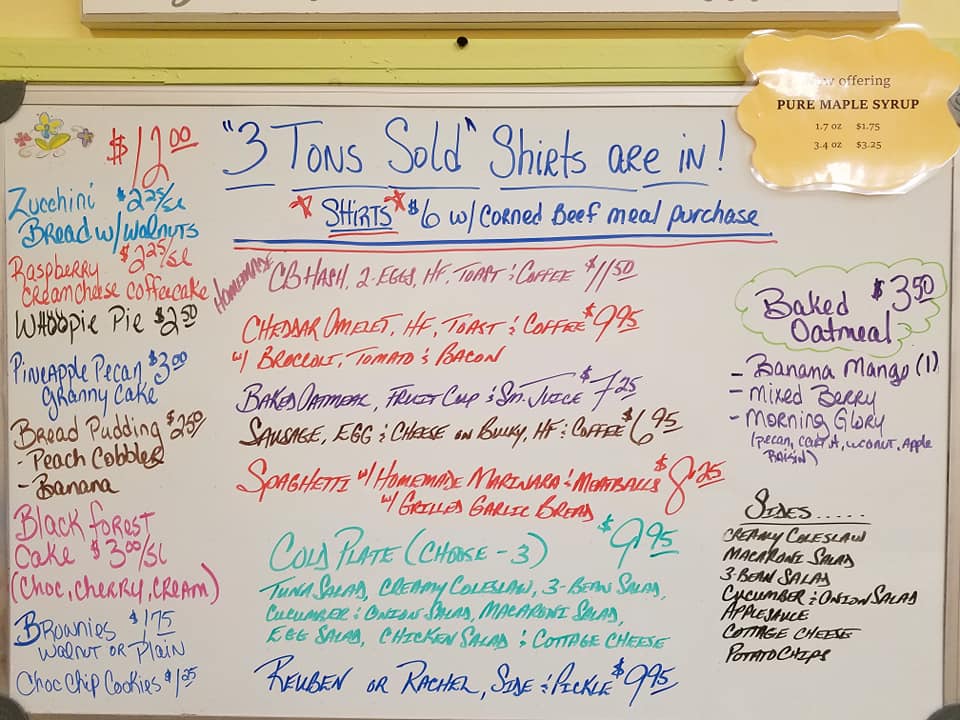 "3 Tons Sold" Shirts are in!
* SHIRTS * $6 w/ Corned Beef meal purchase
Now offering
PURE MAPLE SYRUP
1.7 oz $1.75
3.4 oz $3.25
$12.00
Zucchini $2.25/sl
Bread w/ Walnuts
Raspberry $2.25/sl
Creamcheese coffeecake
Whoopie Pie $2.50
Pineapple Pecan $3.00
Granny Cake
Bread Pudding $2.50
- Peach Cobbler
- Banana
Black forest
Cake $3.00/sl
(Choc, cherry, cream)
Brownies $1.75
Walnut or Plain
Choc Chip Cookies $1.25
HOMEMADE CB HASH, 2-EGGS, HF, TOAST & COFFEE $11.50
CHEDDAR OMELET, HF, TOAST & COFFEE $9.95
w/ BROCCOLI, TOMATO & BACON
BAKED OATMEAL, FRUIT CUP & SM. JUICE $7.25
SAUSAGE, EGG & CHEESE ON BULKY, HF & COFFEE $6.95
SPAGHETTI w/ HOMEMADE MARINARA & MEATBALLS $8.25
w/ GRILLED GARLIC BREAD
COLD PLATE (CHOOSE - 3) $9.95
TUNA SALAD, CREAMY COLESLAW, 3-BEAN SALAD,
CUCUMBER & ONION SALAD, MACARONI SALAD,
EGG SALAD, CHICKEN SALAD & COTTAGE CHEESE
REUBEN OR RACHEL, SIDE & PICKLE $9.95
Baked $3.50
Oatmeal
- Banana Mango (1)
- Mixed Berry
- Morning Glory
(pecan, coconut, Apple
RAISIN)
SIDES.....
CREAMY COLESLAW
MACARONI SALAD
3-BEAN SALAD
CUCUMBER & ONION SALAD
APPLESAUCE
COTTAGE CHEESE
POTATO CHIPS